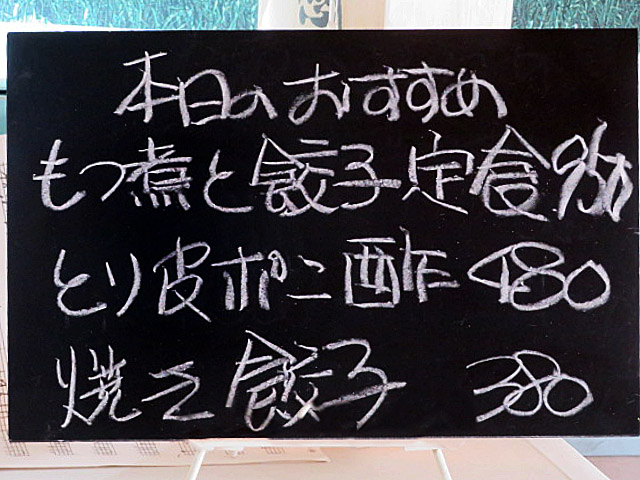 本日のおすすめ
もつ煮と餃子定食 950
とり皮ポン酢 480
焼き餃子 380